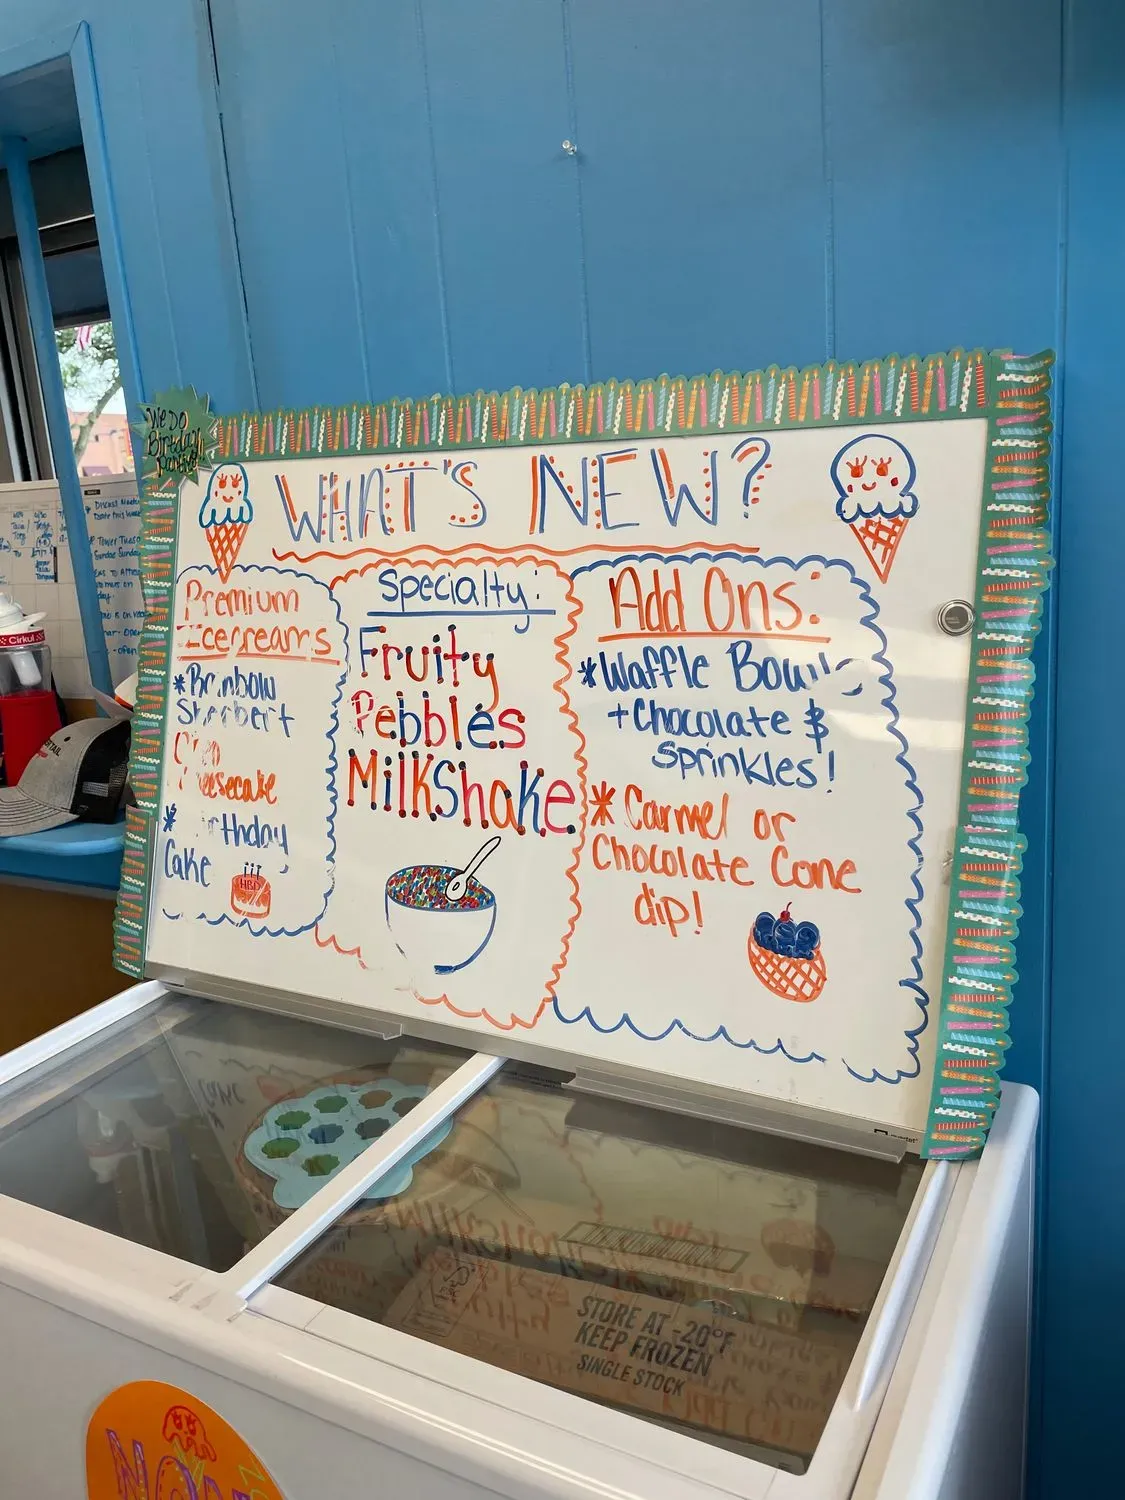 We Do
Birthday
Parties!
WHAT'S NEW?
Premium
Icecreams
*Rainbow
Sherbert
Cheesecake
*Birthday
Cake
HBD
Specialty:
Fruity
Pebbles
MilkShake
Add Ons:
*Waffle Bowls
+Chocolate &
Sprinkles!
*Carmel or
Chocolate Cone
dip!
Cirkul
STORE AT -20°F
KEEP FROZEN
SINGLE STOCK
NOW